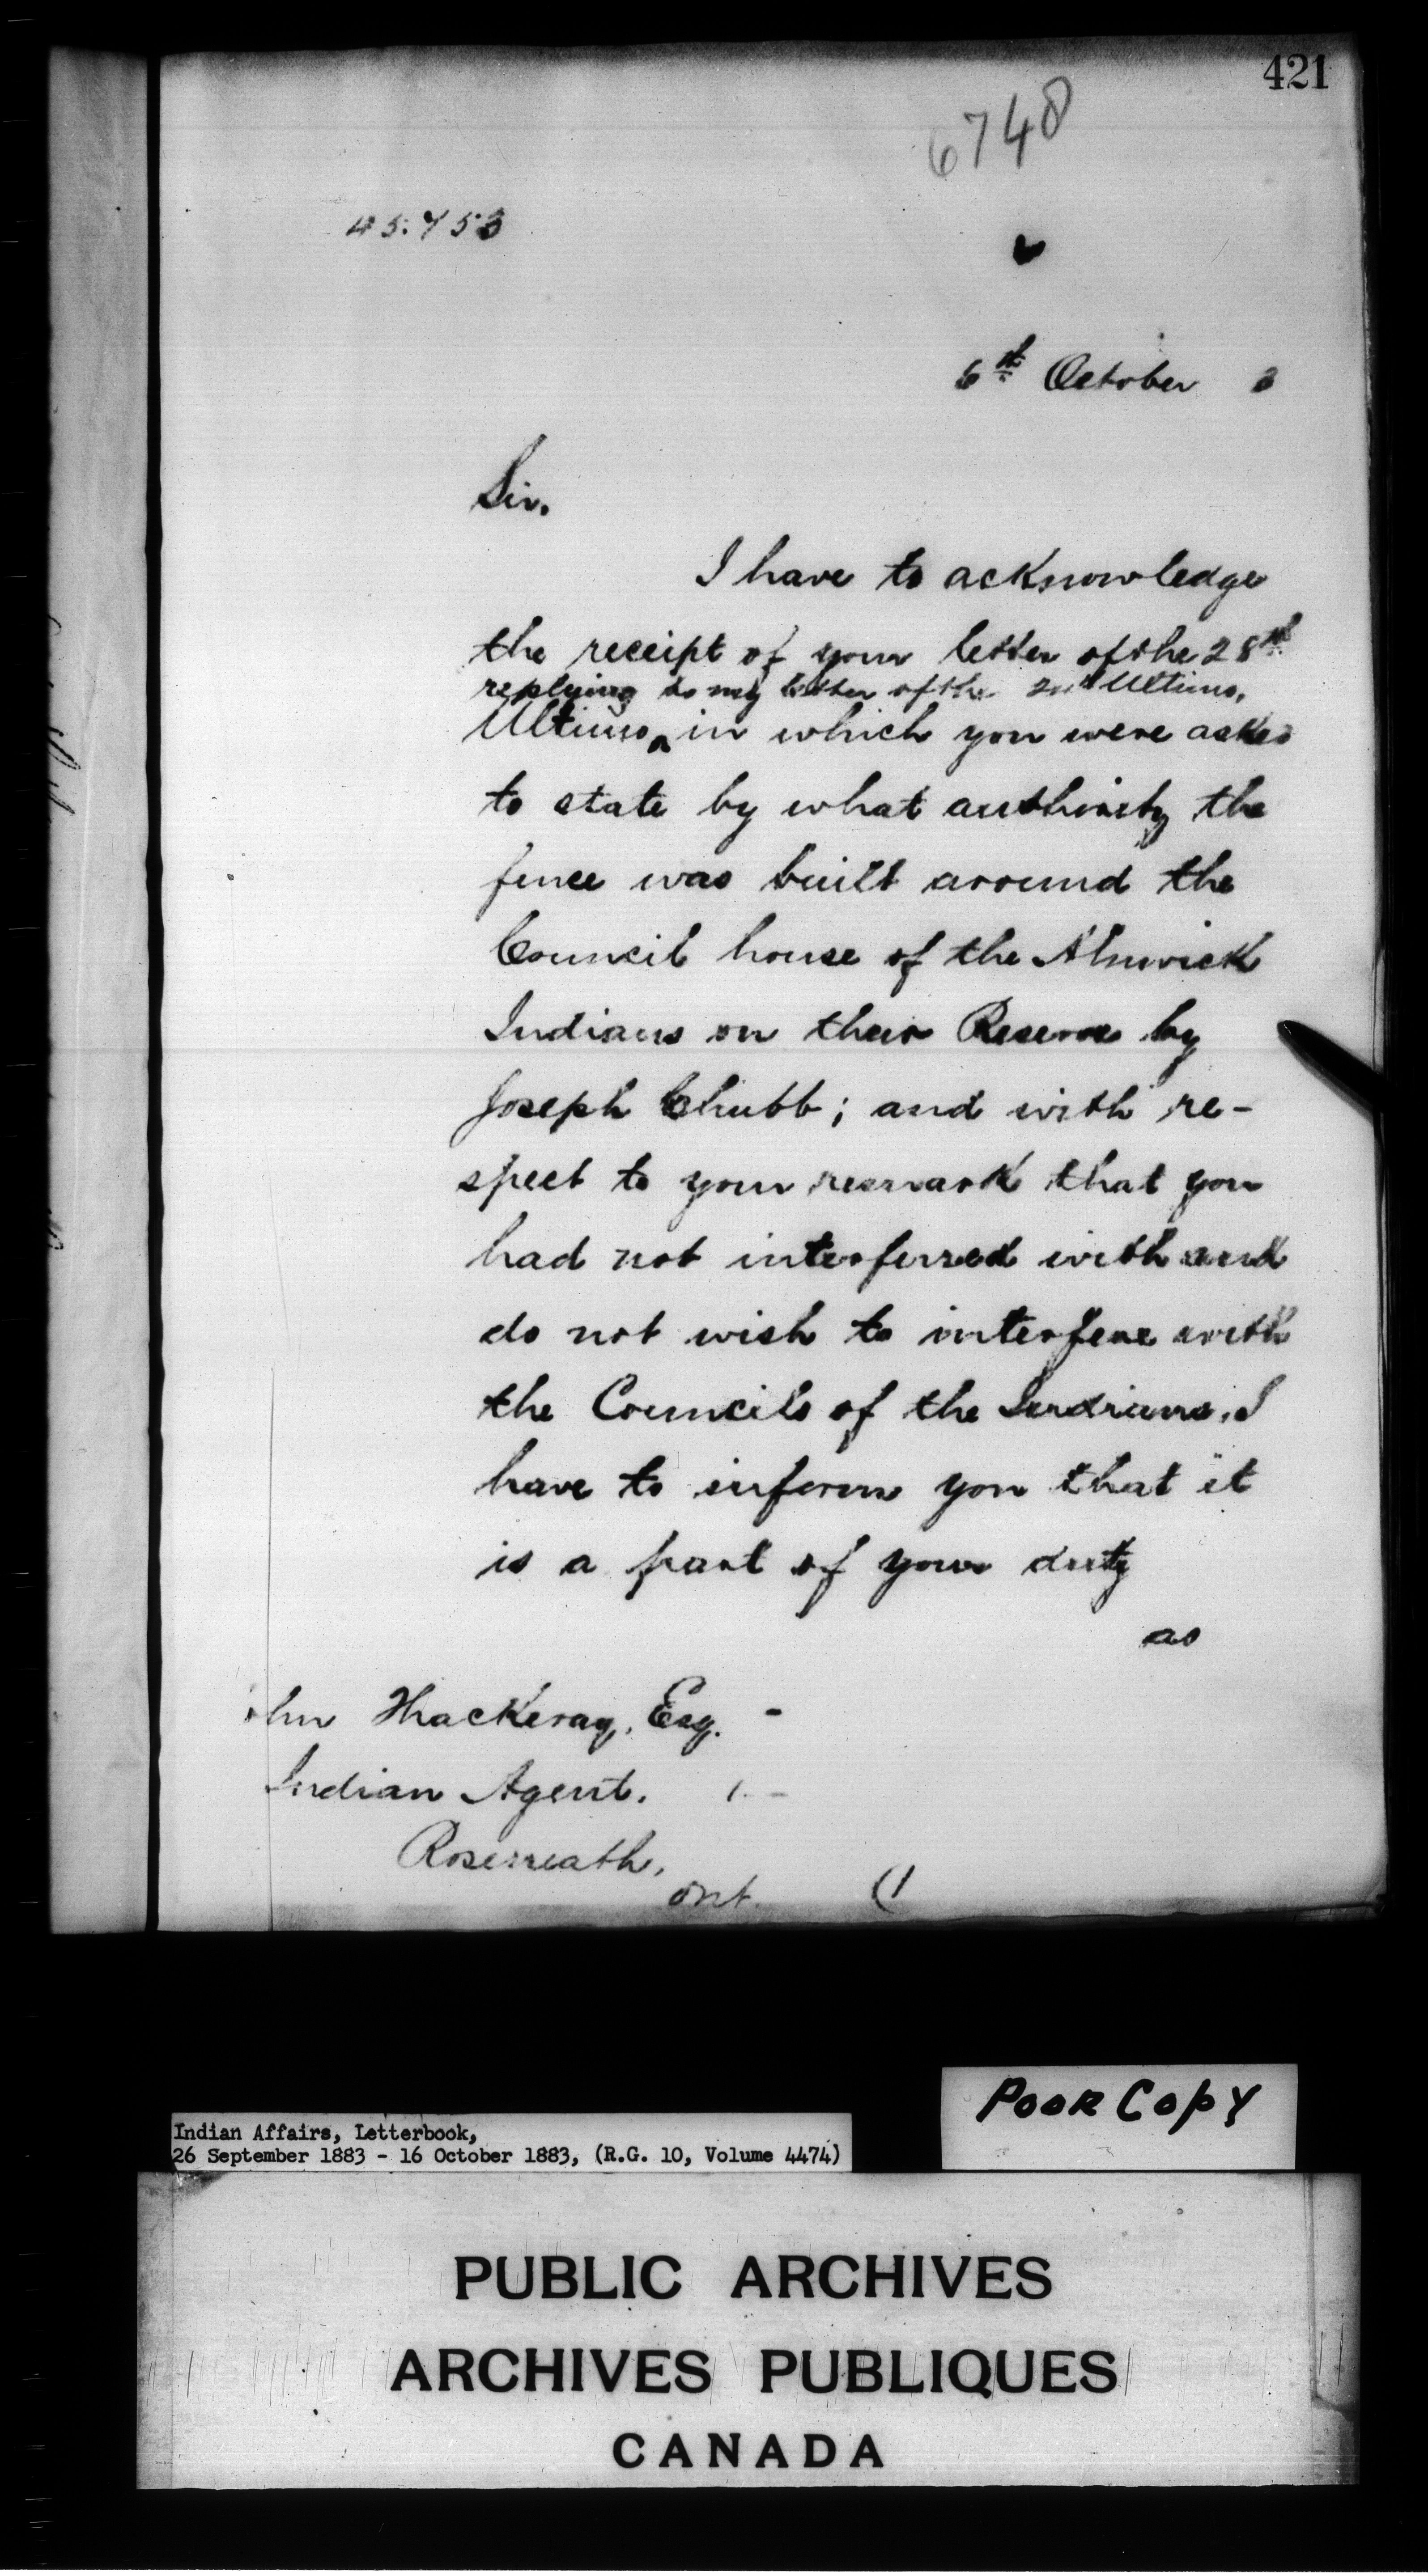 421
6748
45.753
6th October 3
Sir.
I have to acknowledge
the receipt of your letter of the 28th
replying to my letter of the 2nd Ultimo,
Ultimo in which you were asked
to state by what authority the
fence was built around the
Council house of the Alnwick
Indians on their Reserve by
Joseph Chubb; and with re-
spect to your remark that you
had not interferred with and
do not wish to interfere with
the Councils of the Indians, I
have to inform you that it
is a part of your duty
as
ohn Thackeray, Esq.
Indian Agent.
Roseneath,
Ont.
(1
Poor Copy
Indian Affairs, Letterbook,
26 September 1883 - 16 October 1883, (R.G. 10, Volume 4474)
PUBLIC ARCHIVES
ARCHIVES PUBLIQUES
CANADA